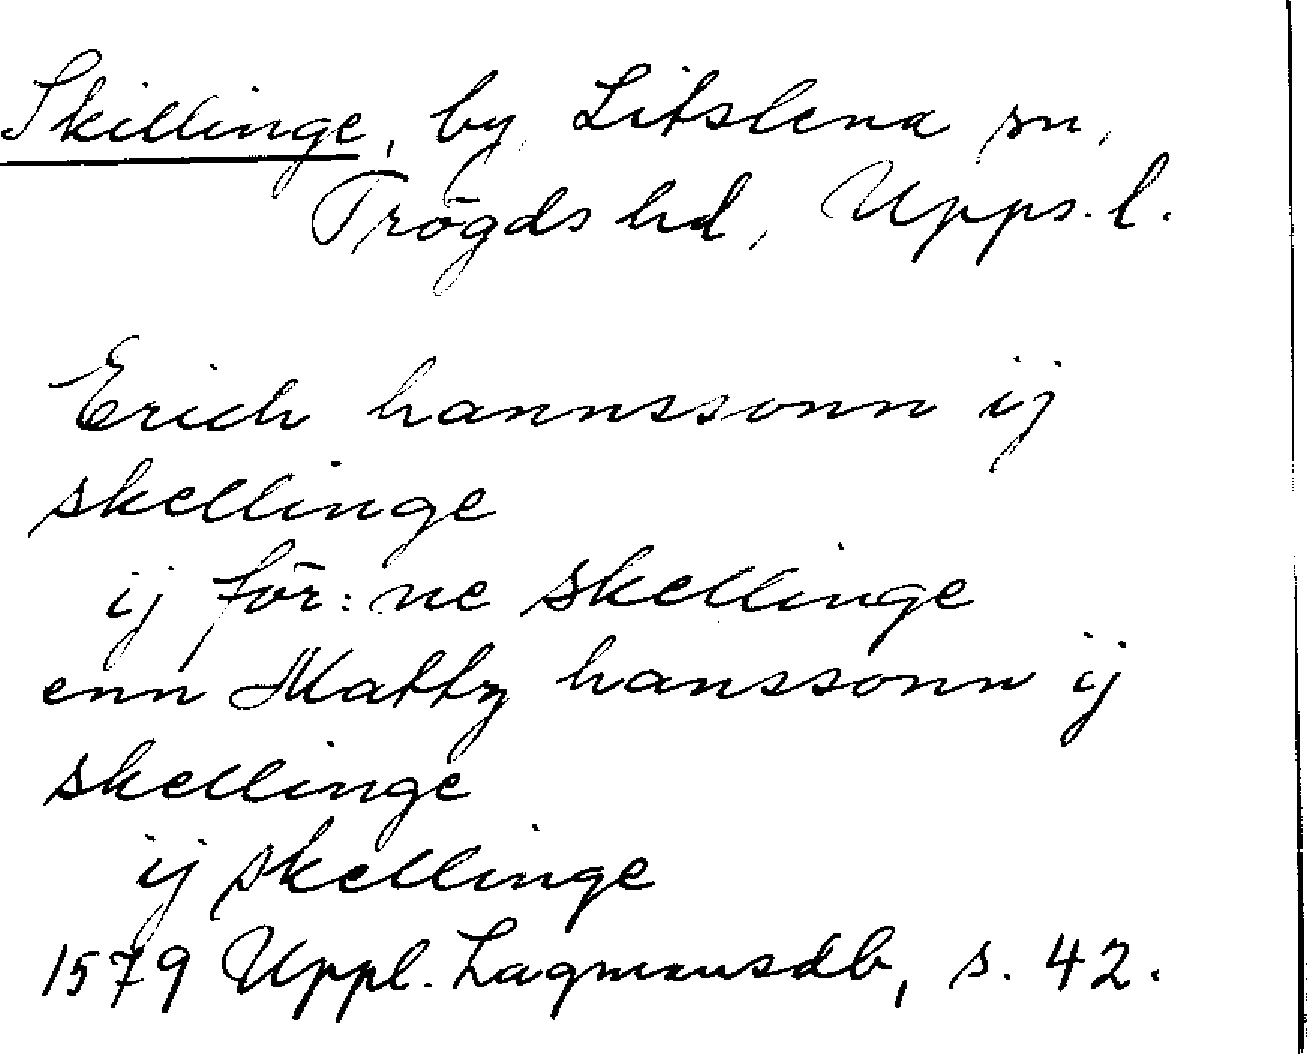 Skillinge, by, Litslena sn,
Trögds hd, Upps. l.
Erich hannssonn ij
skellinge
ij för:ne skellinge
enn Mattz hanssonn ij
skellinge
ij skellinge
1579 Uppl. Lagmansdb, s. 42.